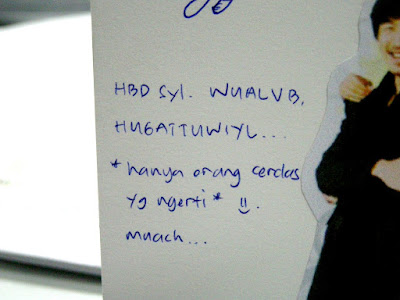 HBD Syl. WUALVB,
HUGATTUWIYL...
*hanya orang cerdas
yg ngerti* :)
muach...